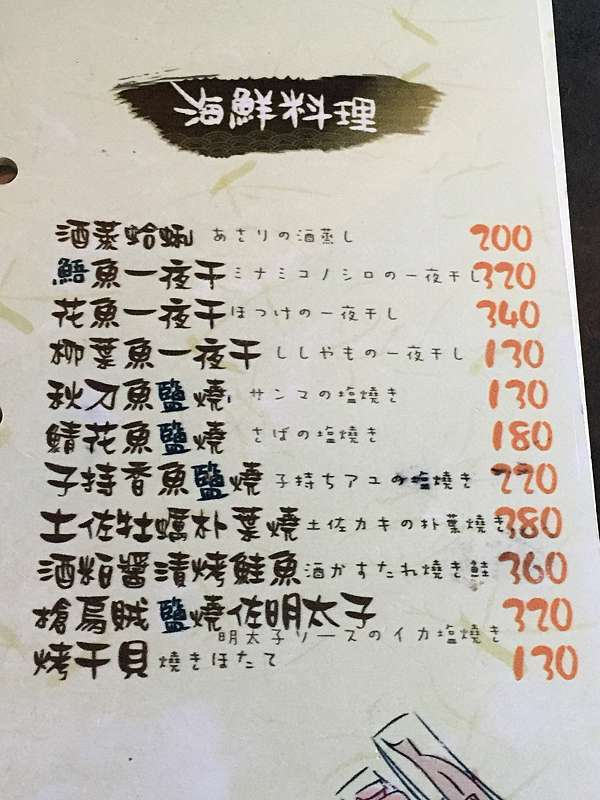 理料鮮海界
酒蒸蛤蜊 あさりの酒蒸し 200
鯃魚一夜干 ミナミコノシロの一夜干し 320
花魚一夜干 ほっけの一夜干し 340
柳葉魚一夜干 ししゃもの一夜干し 130
秋刀魚鹽燒 サンマの塩焼き 130
鯖花魚鹽燒 さばの塩焼き 180
子持香魚鹽燒 子持ちアユの塩焼き 220
土佐牡蠣朴葉燒 土佐カキの朴葉燒き 380
酒粕醬漬烤鮭魚 酒かすたれ燒き鮭 360
槍烏賊鹽燒佐明太子 320
明太子ソースのイカ塩燒き
烤干貝 燒きほたて 130